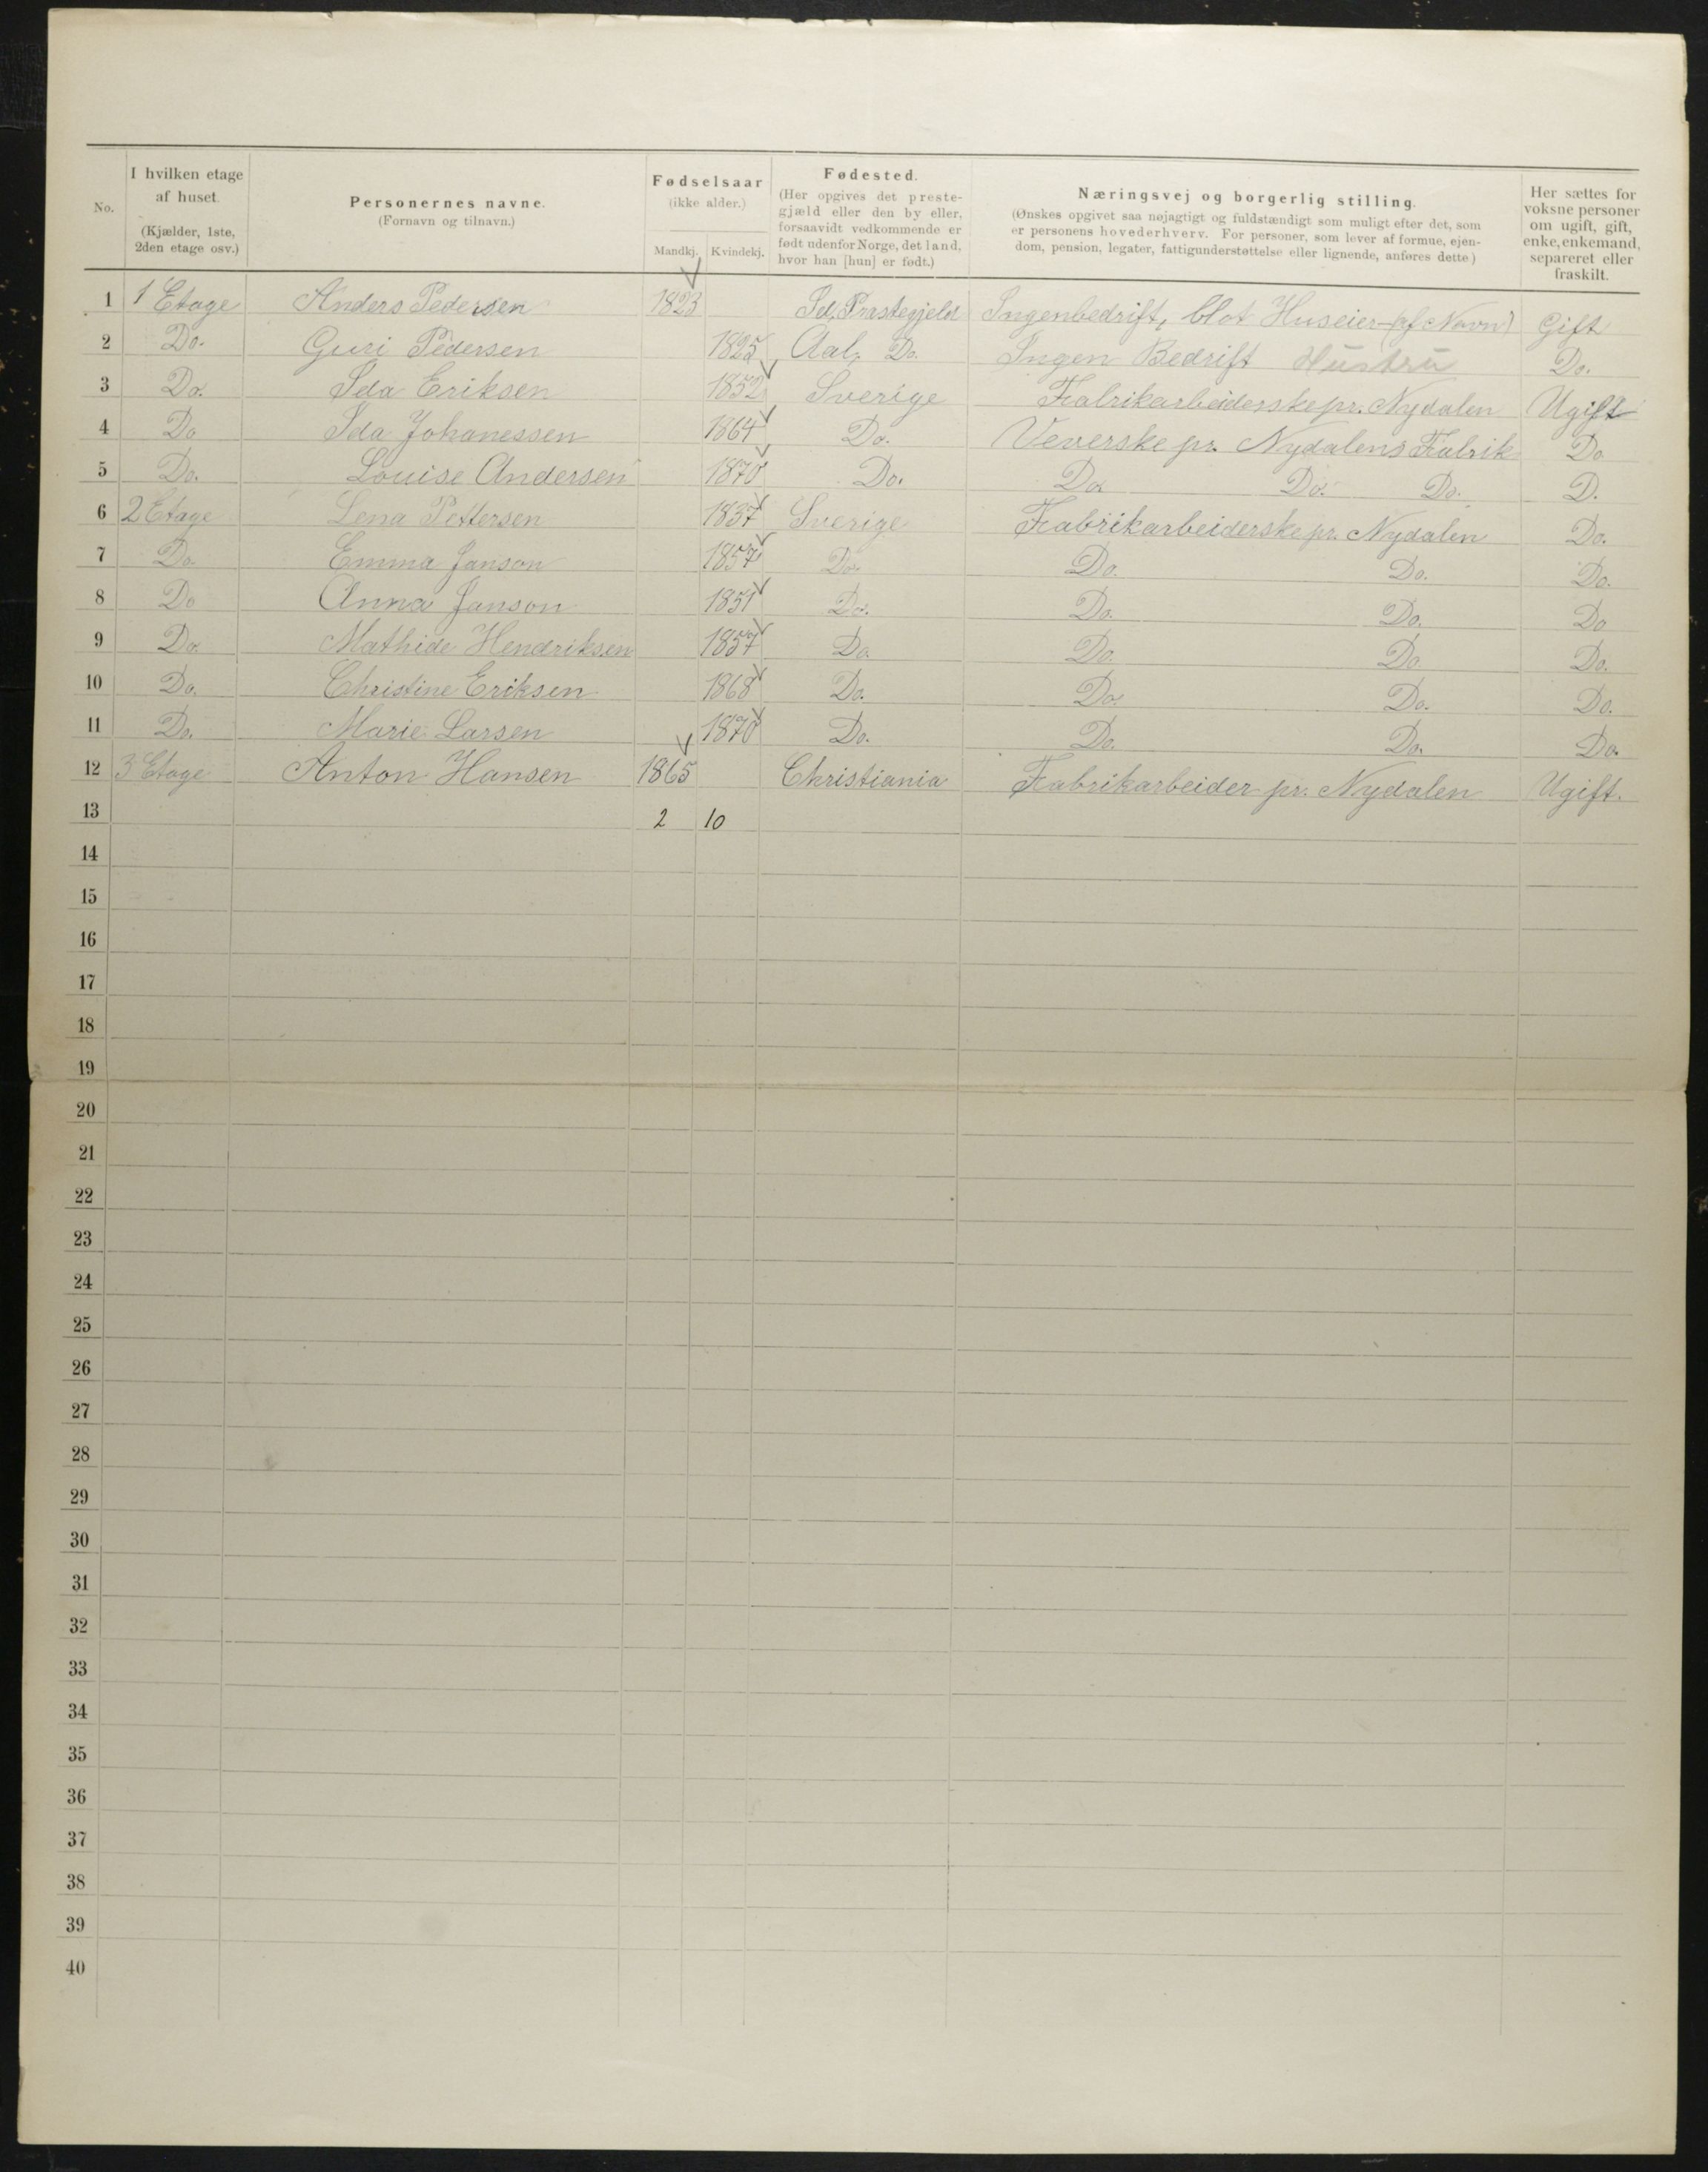 No.
I hvilken etage
af huset.
(Kjælder, 1ste,
2den etage osv.)
Personernes navne.
(Fornavn og tilnavn.)
Fødselsaar
(ikke alder.)
Mandkj. Kvindekj.
Fødested.
(Her opgives det preste-
gjæld eller den by eller,
forsaavidt vedkommende er
født udenfor Norge, det land,
hvor han [hun] er født.)
Næringsvej og borgerlig stilling.
(Ønskes opgivet saa nøjagtigt og fuldstændigt som muligt efter det, som
er personens hovederhverv. For personer, som lever af formue, ejen-
dom, pension, legater, fattigunderstøttelse eller lignende, anføres dette)
Her sættes for
voksne personer
om ugift, gift,
enke, enkemand,
separeret eller
fraskilt.
1 1 Etage Anders Pedersen 1823 Id, Prastegjeld Ingenbedrift, blot Huseier (af Navn) Gift
2 Do. Guri Pedersen 1825 Aal, Do. Ingen Bedrift Hustru Do.
3 Do. Ida Eriksen 1852 Sverige Fabrikarbeiderske pr. Nydalen Ugift
4 Do Ida Johanessen 1864 Do. Veverske pr. Nydalens Fabrik Do
5 Do. Louise Andersen 1870 Do. Do. Do. Do. D.
6 2 Etage Lena Pettersen 1837 Sverige Fabrikarbeiderske pr. Nydalen Do.
7 Do. Emma Janson 1857 Do. Do. Do. Do.
8 Do Anna Janson 1851 Do. Do. Do. Do
9 Do. Mathide Hendriksen 1857 Do. Do. Do Do.
10 Do. Christine Eriksen 1868 Do. Do. Do. Do.
11 Do. Marie Larsen 1870 Do. Do. Do. Do.
12 3 Etage Anton Hansen 1865 Christiania Fabrikarbeider pr. Nydalen Ugift.
13 2 10
14
15
16
17
18
19
20
21
22
23
24
25
26
27
28
29
30
31
32
33
34
35
36
37
38
39
40